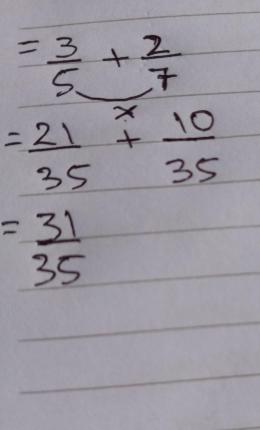 = 3/5 + 2/7
×
= 21/35 + 10/35
= 31/35